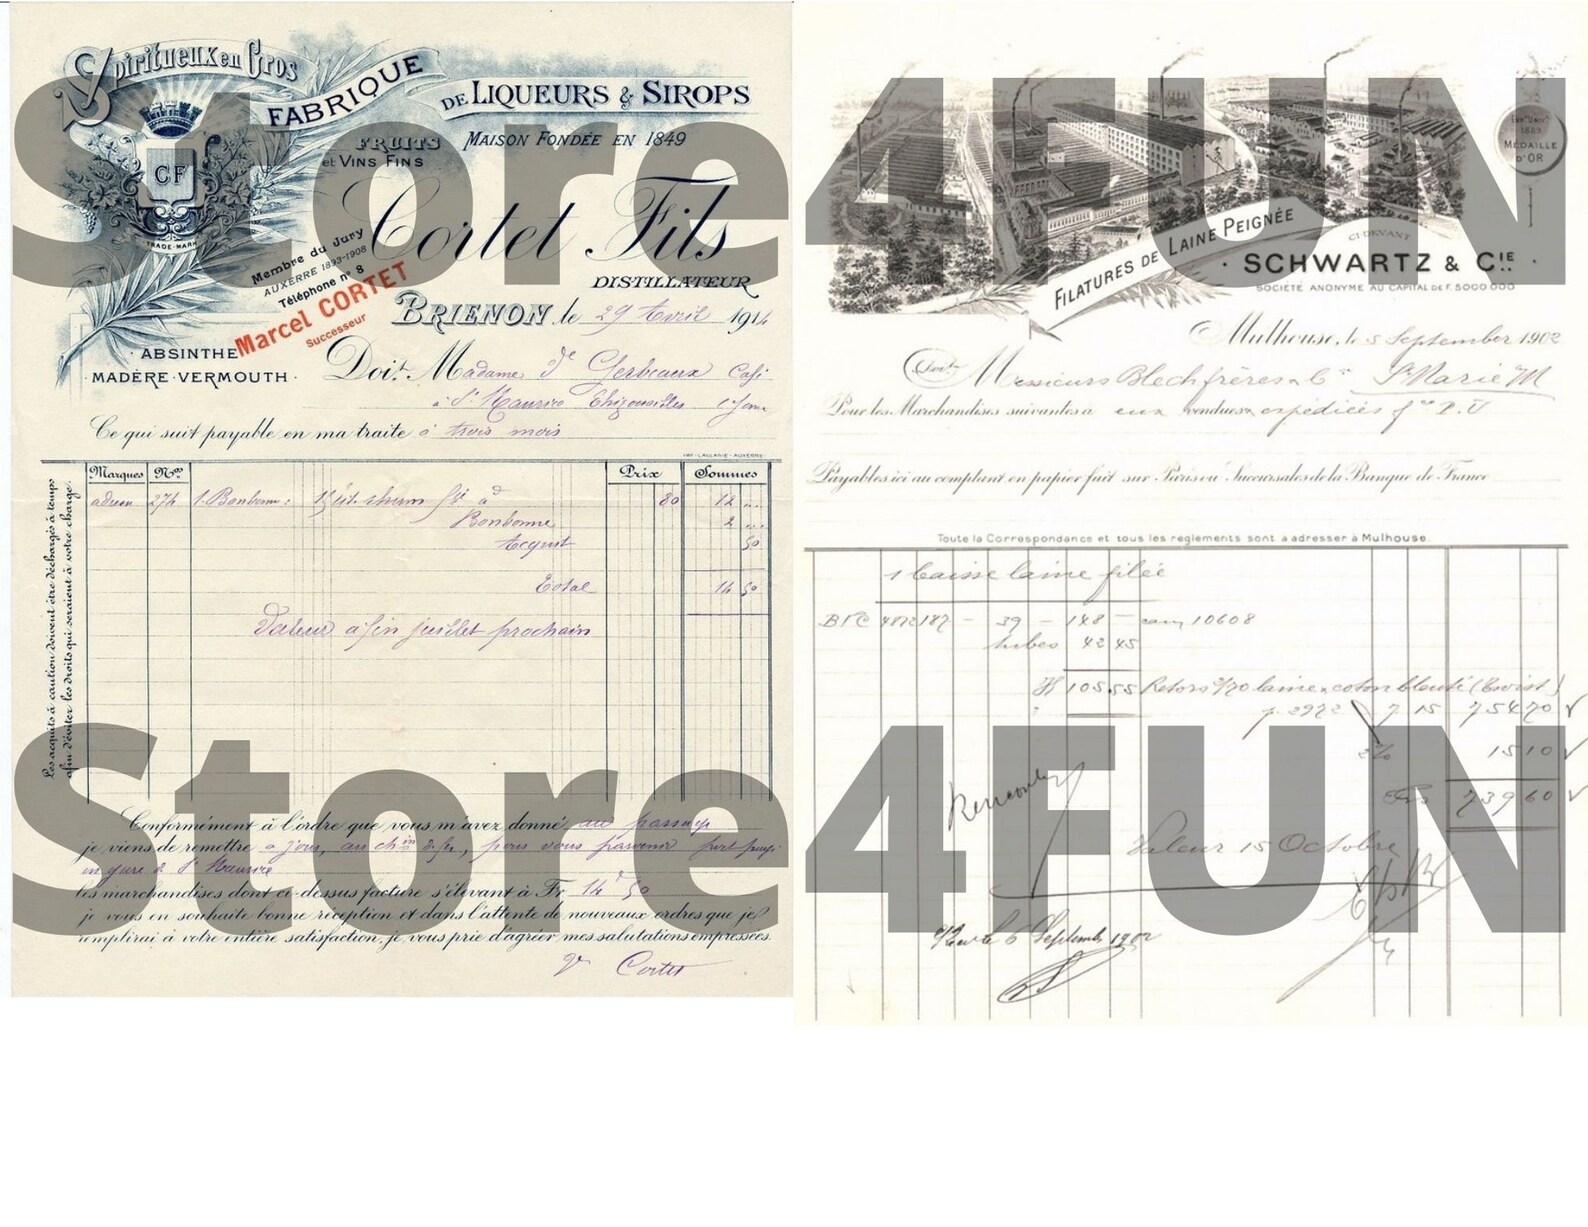 Spiritueux en Gros
FABRIQUE
DE LIQUEURS & SIROPS
FRUITS
et VINS FINS
MAISON FONDÉE EN 1849
CF
TRADE-MARK
Cortet Fils
DISTILLATEUR
Membre du Jury
AUXERRE 1893-1908
Téléphone nº 8
Marcel CORTET
Successeur
BRIENON le 29 Avril 1914
ABSINTHE
MADÈRE · VERMOUTH ·
Doit Madame Gerbeaux Café
à St Maurice
Ce qui suit payable en ma traite à trois mois
IMP. LALLANIE-AUXERRE
Marques Nos Prix Sommes
274 1 Bonbonne 80 12
Bonbonne 2
Acquit 50
Total 14 50
Valeur à fin juillet prochain
Les acquits à caution doivent être déchargés à temps
afin d'éviter les droits qui seraient à votre charge.
Conformément à l'ordre que vous m'avez donné au passage
je viens de remettre à jour, au ch in de fer, pour vous parvenir port payé
en gare de St Maurice
les marchandises dont ci-dessus facture s'élevant à Fr 14 f 50
je vous en souhaite bonne réception et dans l'attente de nouveaux ordres que je
remplirai à votre entière satisfaction, je vous prie d'agréer mes salutations empressées.
Cortet
Expon Univlle
1889
MÉDAILLE
D'OR
FILATURES DE LAINE PEIGNÉE
CI-DEVANT
SCHWARTZ & CIE
SOCIÉTÉ ANONYME AU CAPITAL DE F. 5000 000
Mulhouse, le 5 September 1902
Doit Messieurs Blech frères & Cie Ste Marie M
Pour les Marchandises suivantes à eux vendues expédiées
Payables ici au comptant en papier fait sur Paris ou Succursales de la Banque de France
Toute la Correspondance et tous les règlements sont à adresser à Mulhouse.
1 Caisse laine filée
BFC 4872 187 - 39 - 148 - 10608
tubes 42 45
K 105.55 Retors 2/70 laine & coton
p. 2972 7 15 754 70
2% 15 10
739 60
Valeur 15 Octobre
le 6 Septembre 1902
Store 4FUN
Store 4FUN